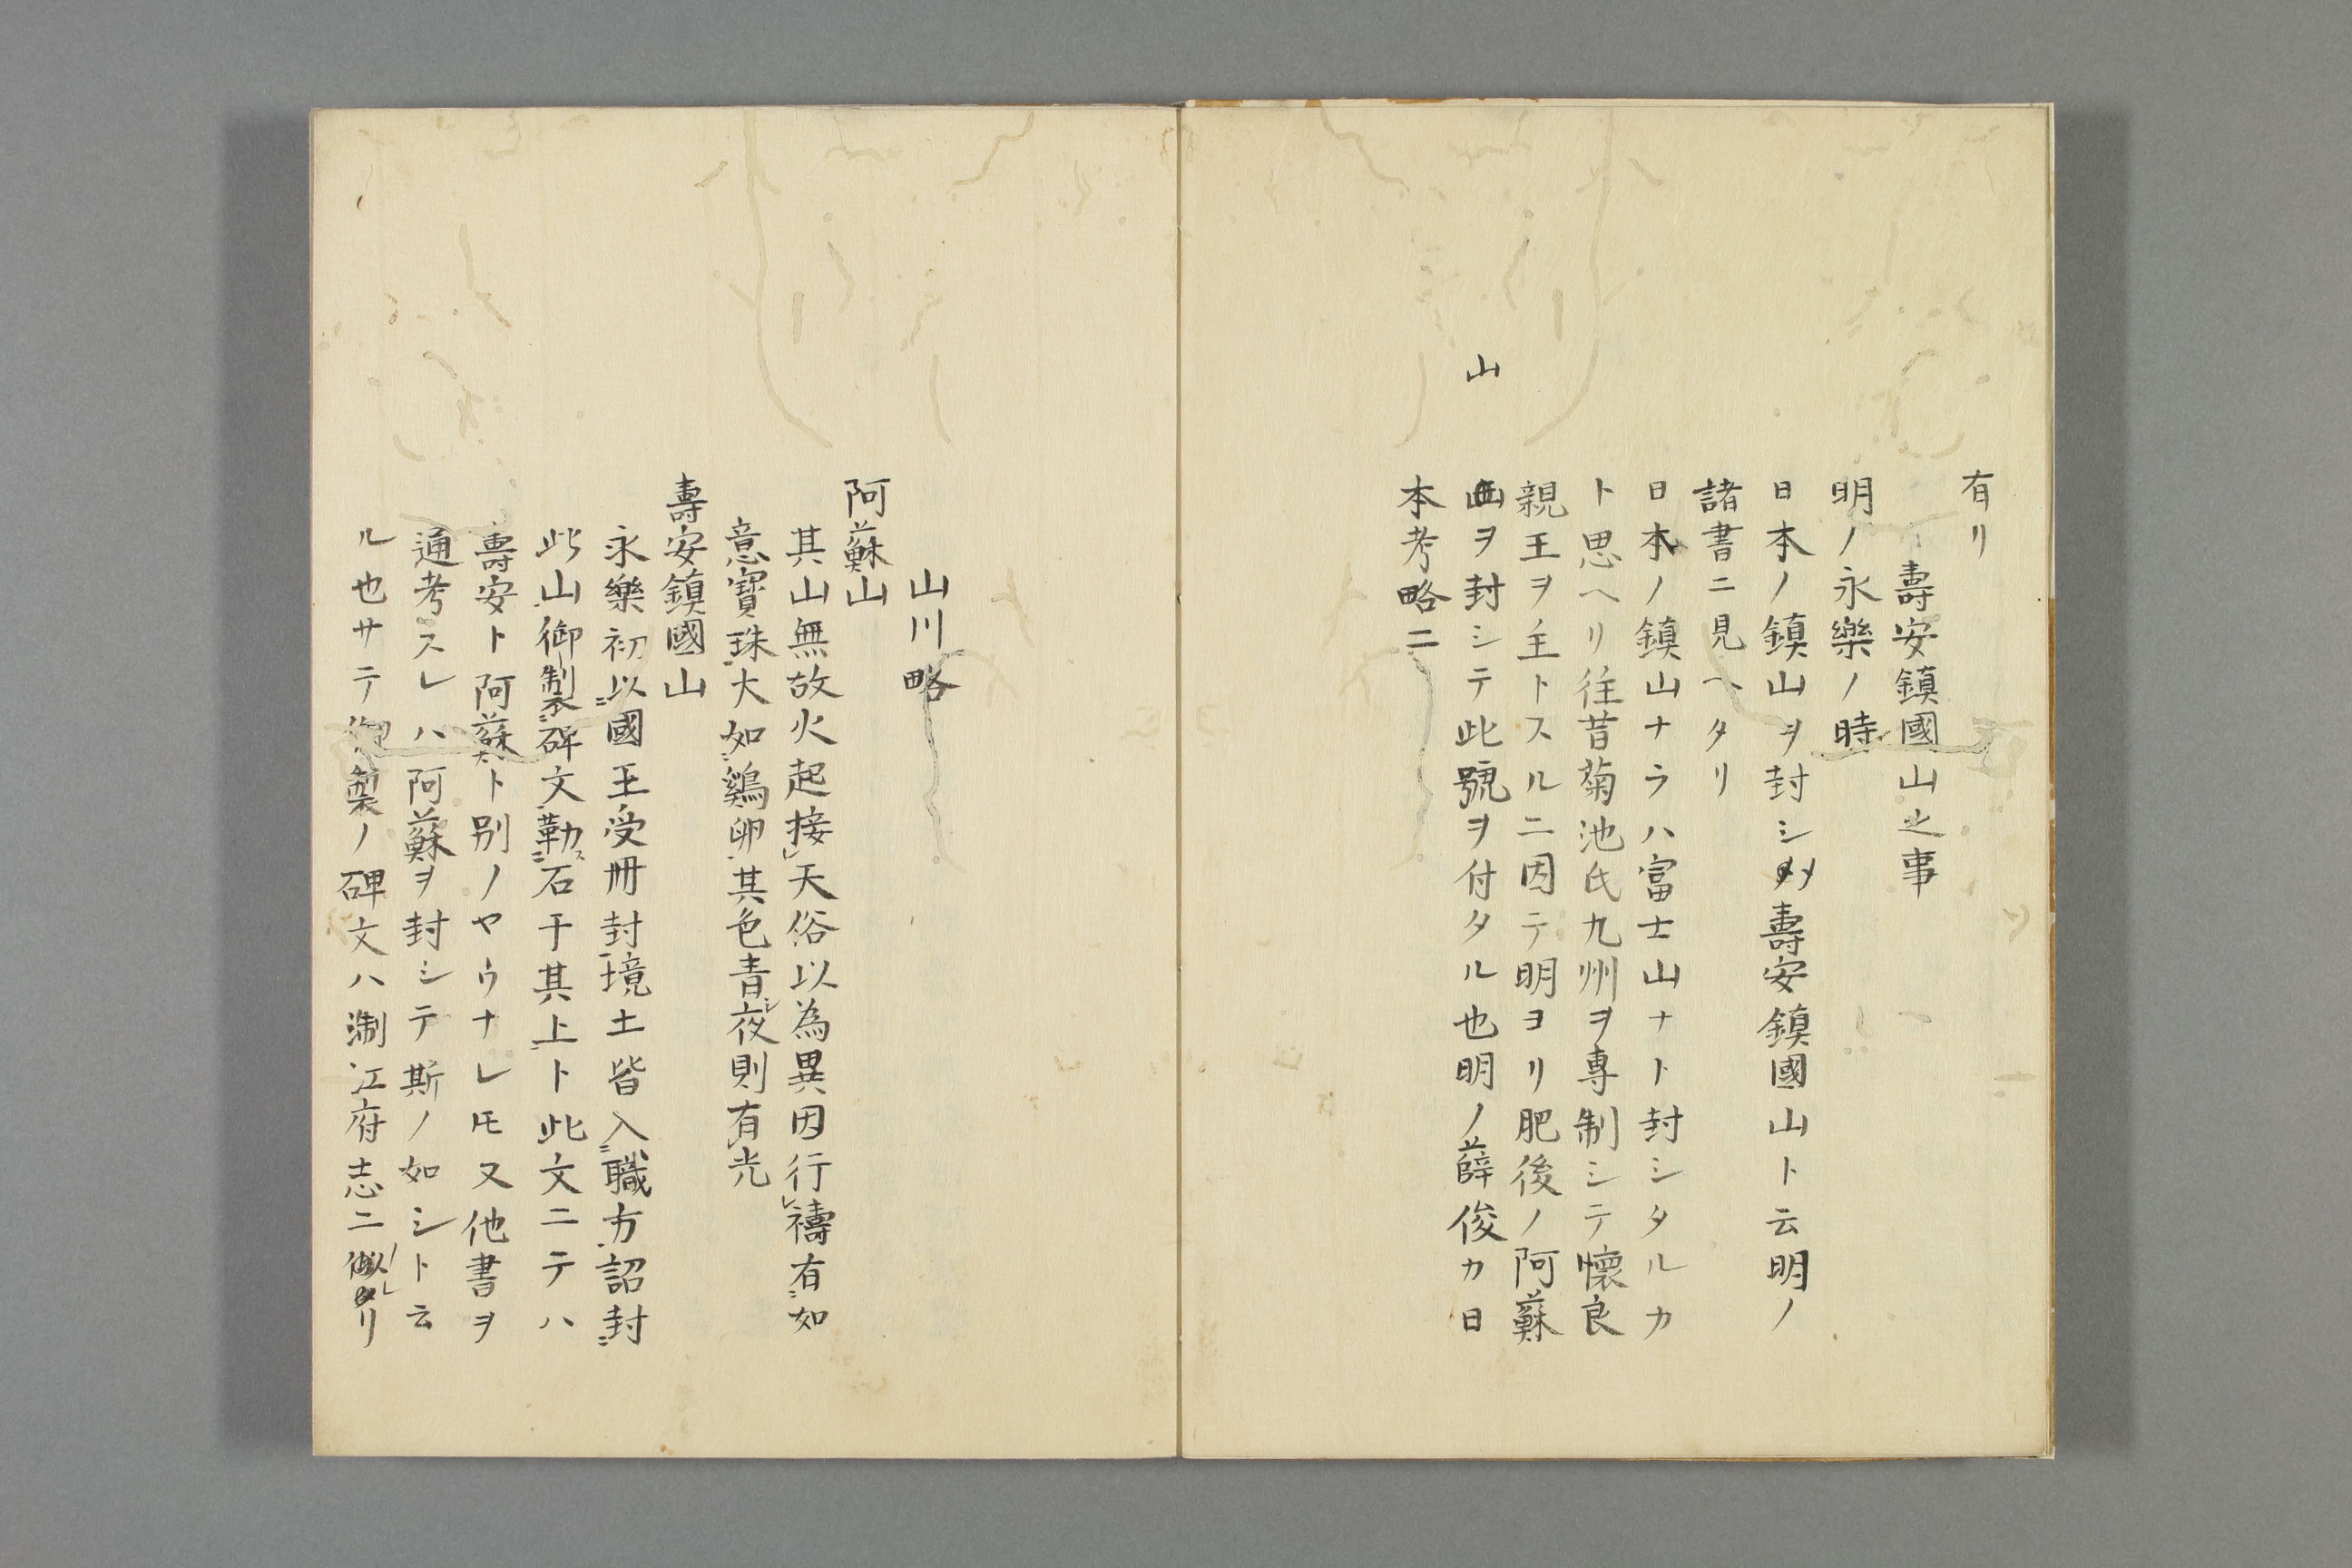 有リ
壽安鎮國山之事
明ノ永樂ノ時
日本ノ鎮山ヲ封シメ壽安鎮國山ト云明ノ
諸書ニ見ヘタリ
日本ノ鎮山ナラハ富士山ナト封シタルカ
ト思ヘリ徃昔菊池氏九州ヲ専制シテ懐良
親王ヲ主トスルニ因テ明ヨリ肥後ノ阿蘇
山
ヲ封シテ此號ヲ付タル也明ノ薛俊カ日
本考略ニ
山川略
阿蘇山
其山無故火起接レ天俗以為異因行レ禱有如
意寶珠大如鷄卵其色青シ夜則有光
壽安鎮國山
永樂初以國王受冊封境土皆入職方詔封
此山御製碑文勒ス石于其上ト此文ニテハ
壽安ト阿蘇ト別ノヤウナレ𪜈又他書ヲ
通考スレハ阿蘇ヲ封シテ斯ノ如シト云
ル也サテ御製ノ碑文ハ淛江府志ニ似レリ